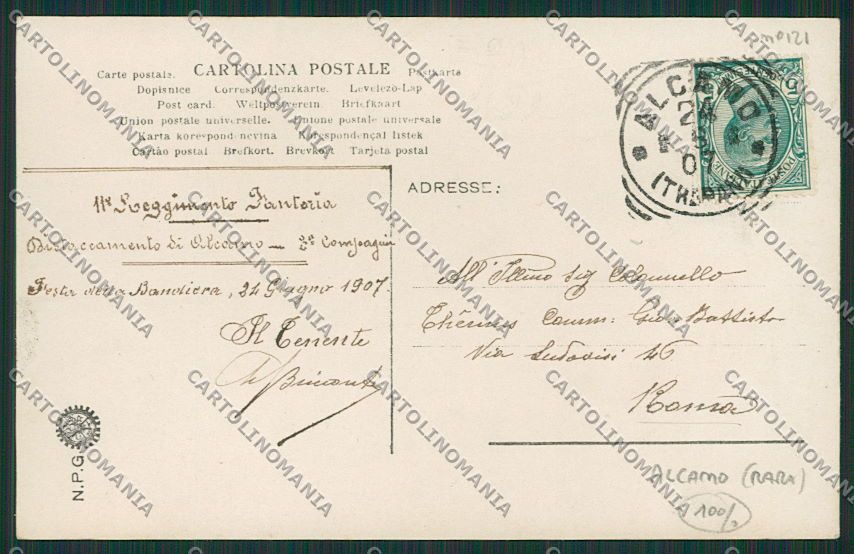 nº121
Carte postale. CARTOLINA POSTALE Postkarte
Dopisnice Correspondenzkarte. Levelező-Lap
Post card. Weltpostverein. Briefkaart
Union postale universelle. Unione postale universale
Karta korespondencvina Korespondençal listek
Cartão postal Brefkort. Brevkort Tarjeta postal
ALCAMO
24
07
(TRAPANI)
POSTE ITALIANE
5
ADRESSE:
11º Reggimento Fanteria
Distaccamento di Alcamo — 2ª Compagnia
Festa della Bandiera, 24 Giugno 1907
Il Tenente
All' Illmo Sig Colonnello
Comm: Gio: Battista
Via Ludovisi 46
Roma
N.P.G.
ALCAMO (RARA)
100/
CARTOLINOMANIA